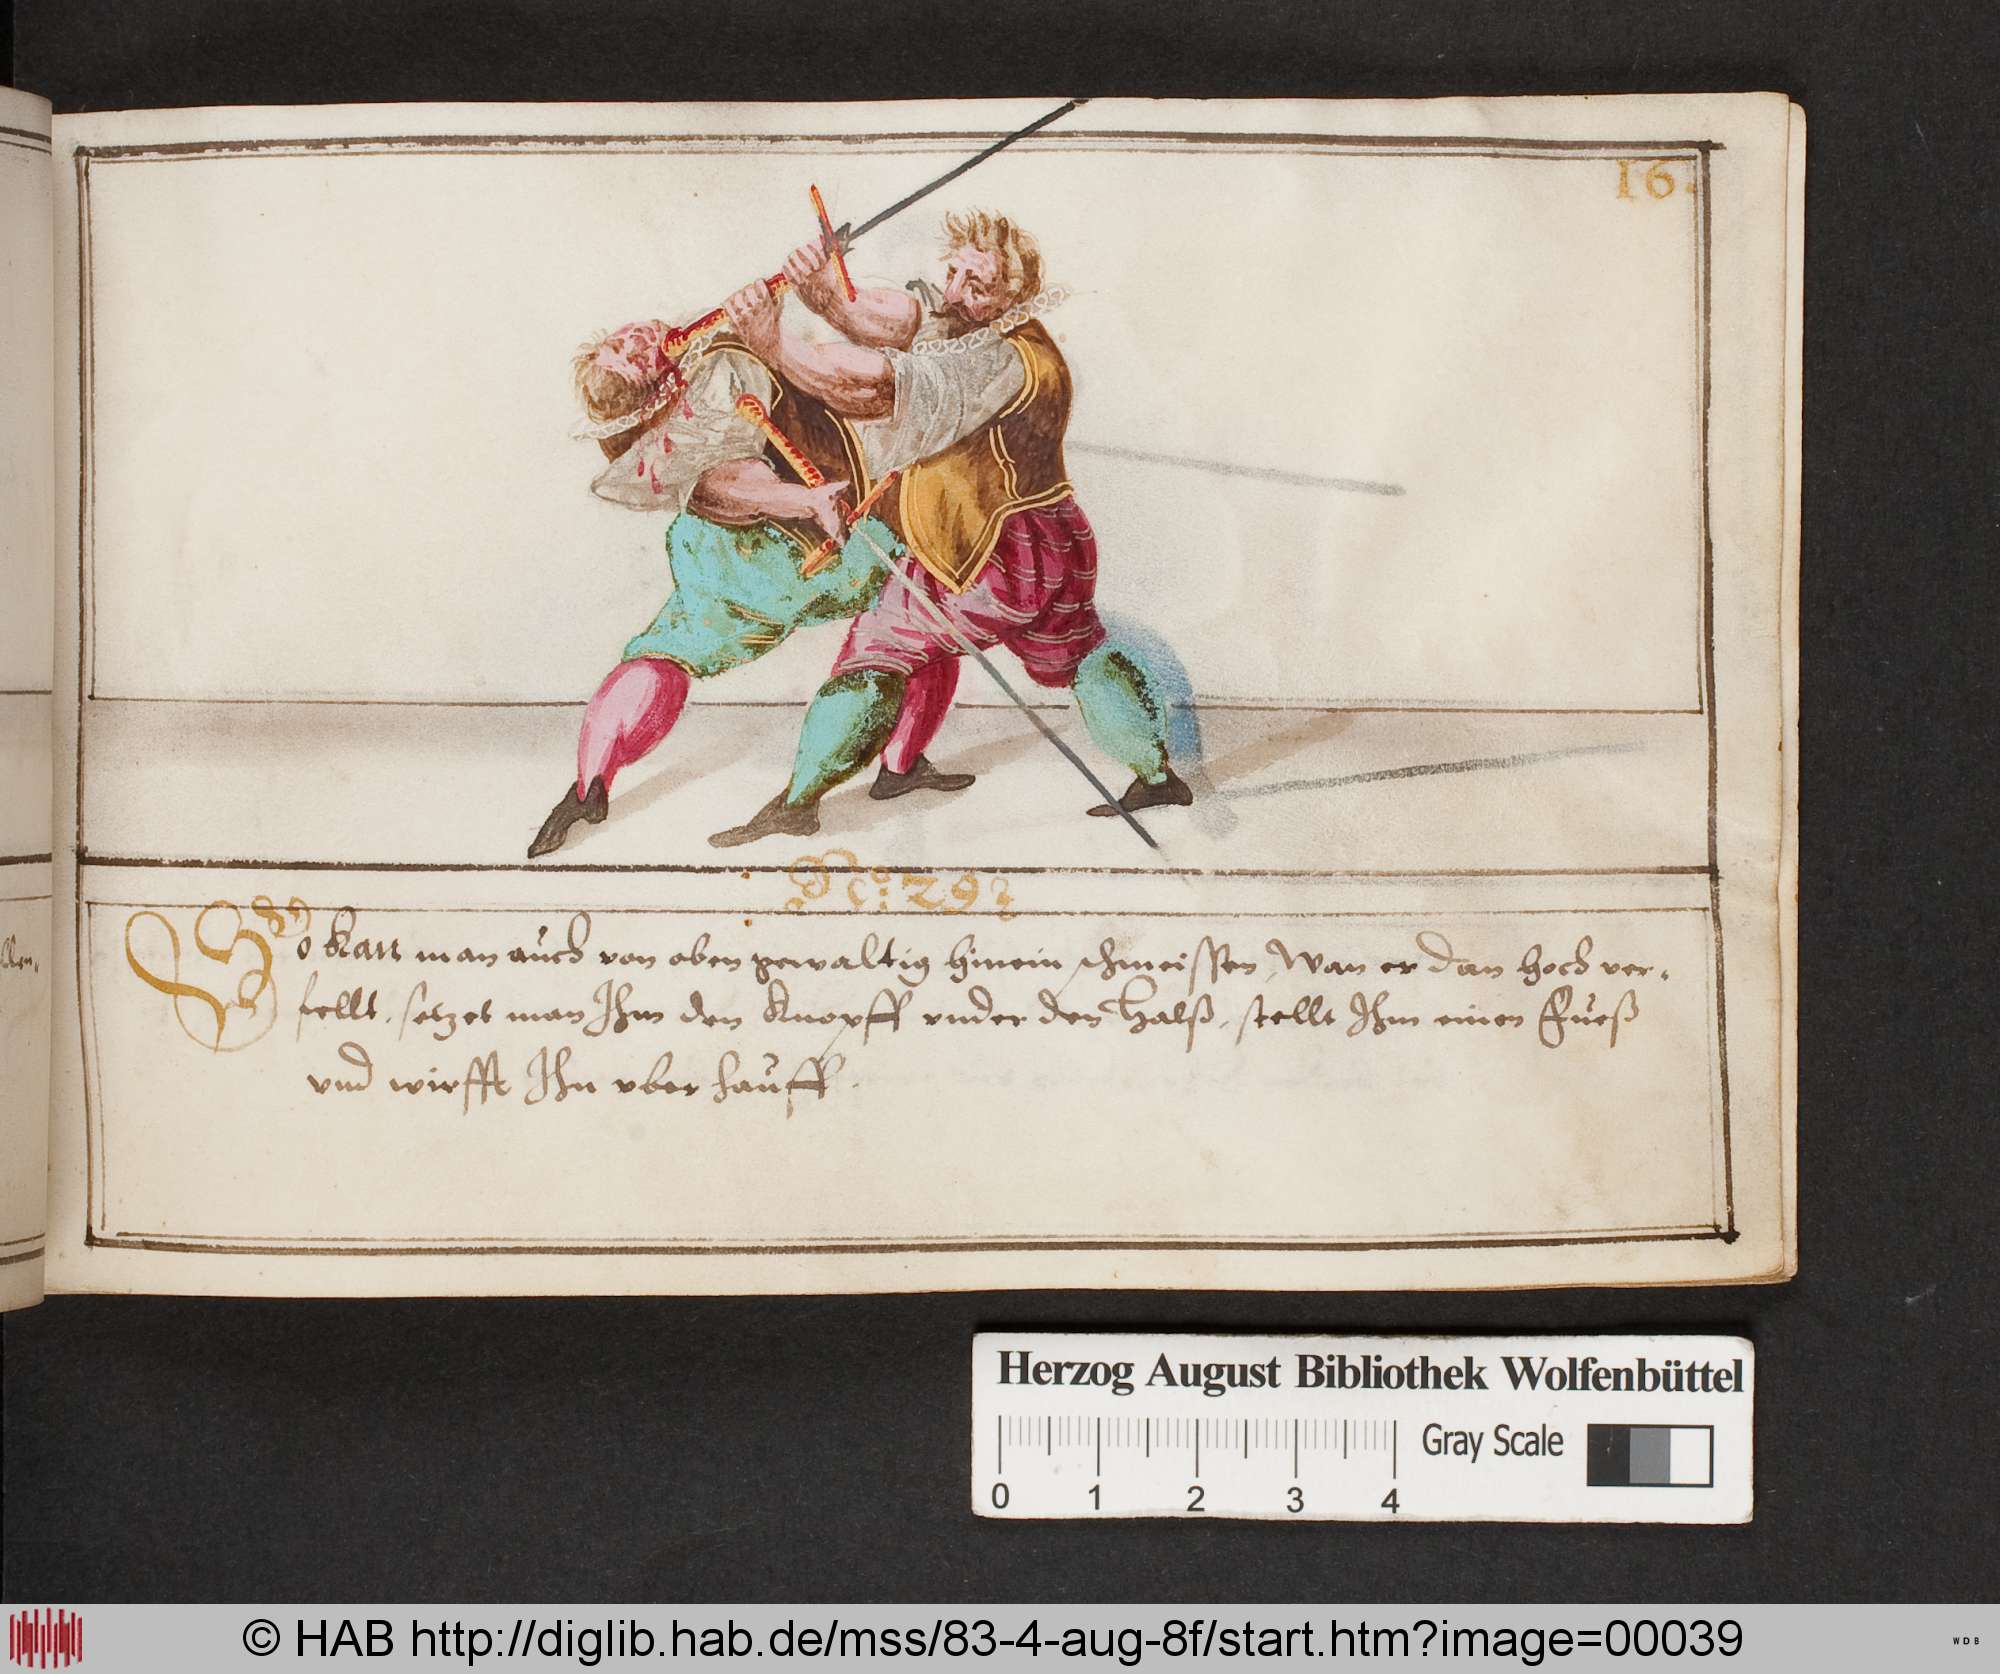 16.
No: 29
So Kan man auch von oben gewaltig hinein schmeissen, Wan er dan hoch ver-
sellt, setzet man Ihm den Knopff vnder den Halß, stellt Ihm einen Fueß
vnd wirfft Ihn vber hauff.
Herzog August Bibliothek Wolfenbüttel
0 1 2 3 4 Gray Scale
© HAB http://diglib.hab.de/mss/83-4-aug-8f/start.htm?image=00039
WDB